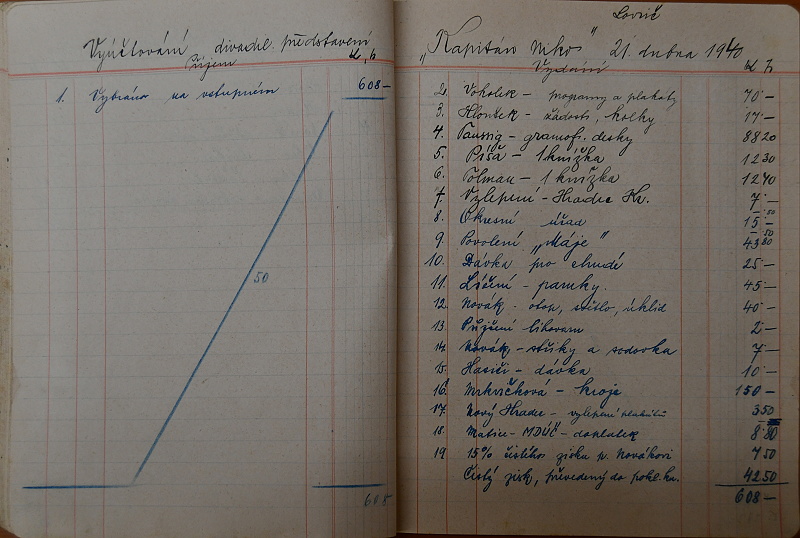 Vyúčtování divadel. představení
Příjem K h
1. Vybráno na vstupném 608 —
50
608
Lovrič
„Kapitán Nikos" 21. dubna 1940
Vydání K h
2. Vokolek – programy a plakáty 70 –
3. Hloušek – žádosti, kolky 17 –
4. Taussig – gramof. desky 88 20
5. Píša – 1 knížka 12 30
6. Tolman – 1 knížka 12 40
7. Vylepení – Hradec Kr. 7 –
8. Okresní úřad 15
9. Povolení „Máje" 43 80
10. Dávka pro chudé 25 –
11. Líčení – paruky. 45 –
12. Novák – otop, světlo, úklid 40 –
13. Půjčení lihovaru 2 –
14. Novák – střiky a sodovka 7 –
15. Hasiči – dávka 10 –
16. Mrkvičková – kroje 150 –
17. Nový Hradec – vylepení plakátů 3 50
18. Matice – MDÚČ – doplatek 8 80
19 15% čistého zisku p. Novákovi 7 50
Čistý zisk, převedený do pokl. kn. 42 50
608 –